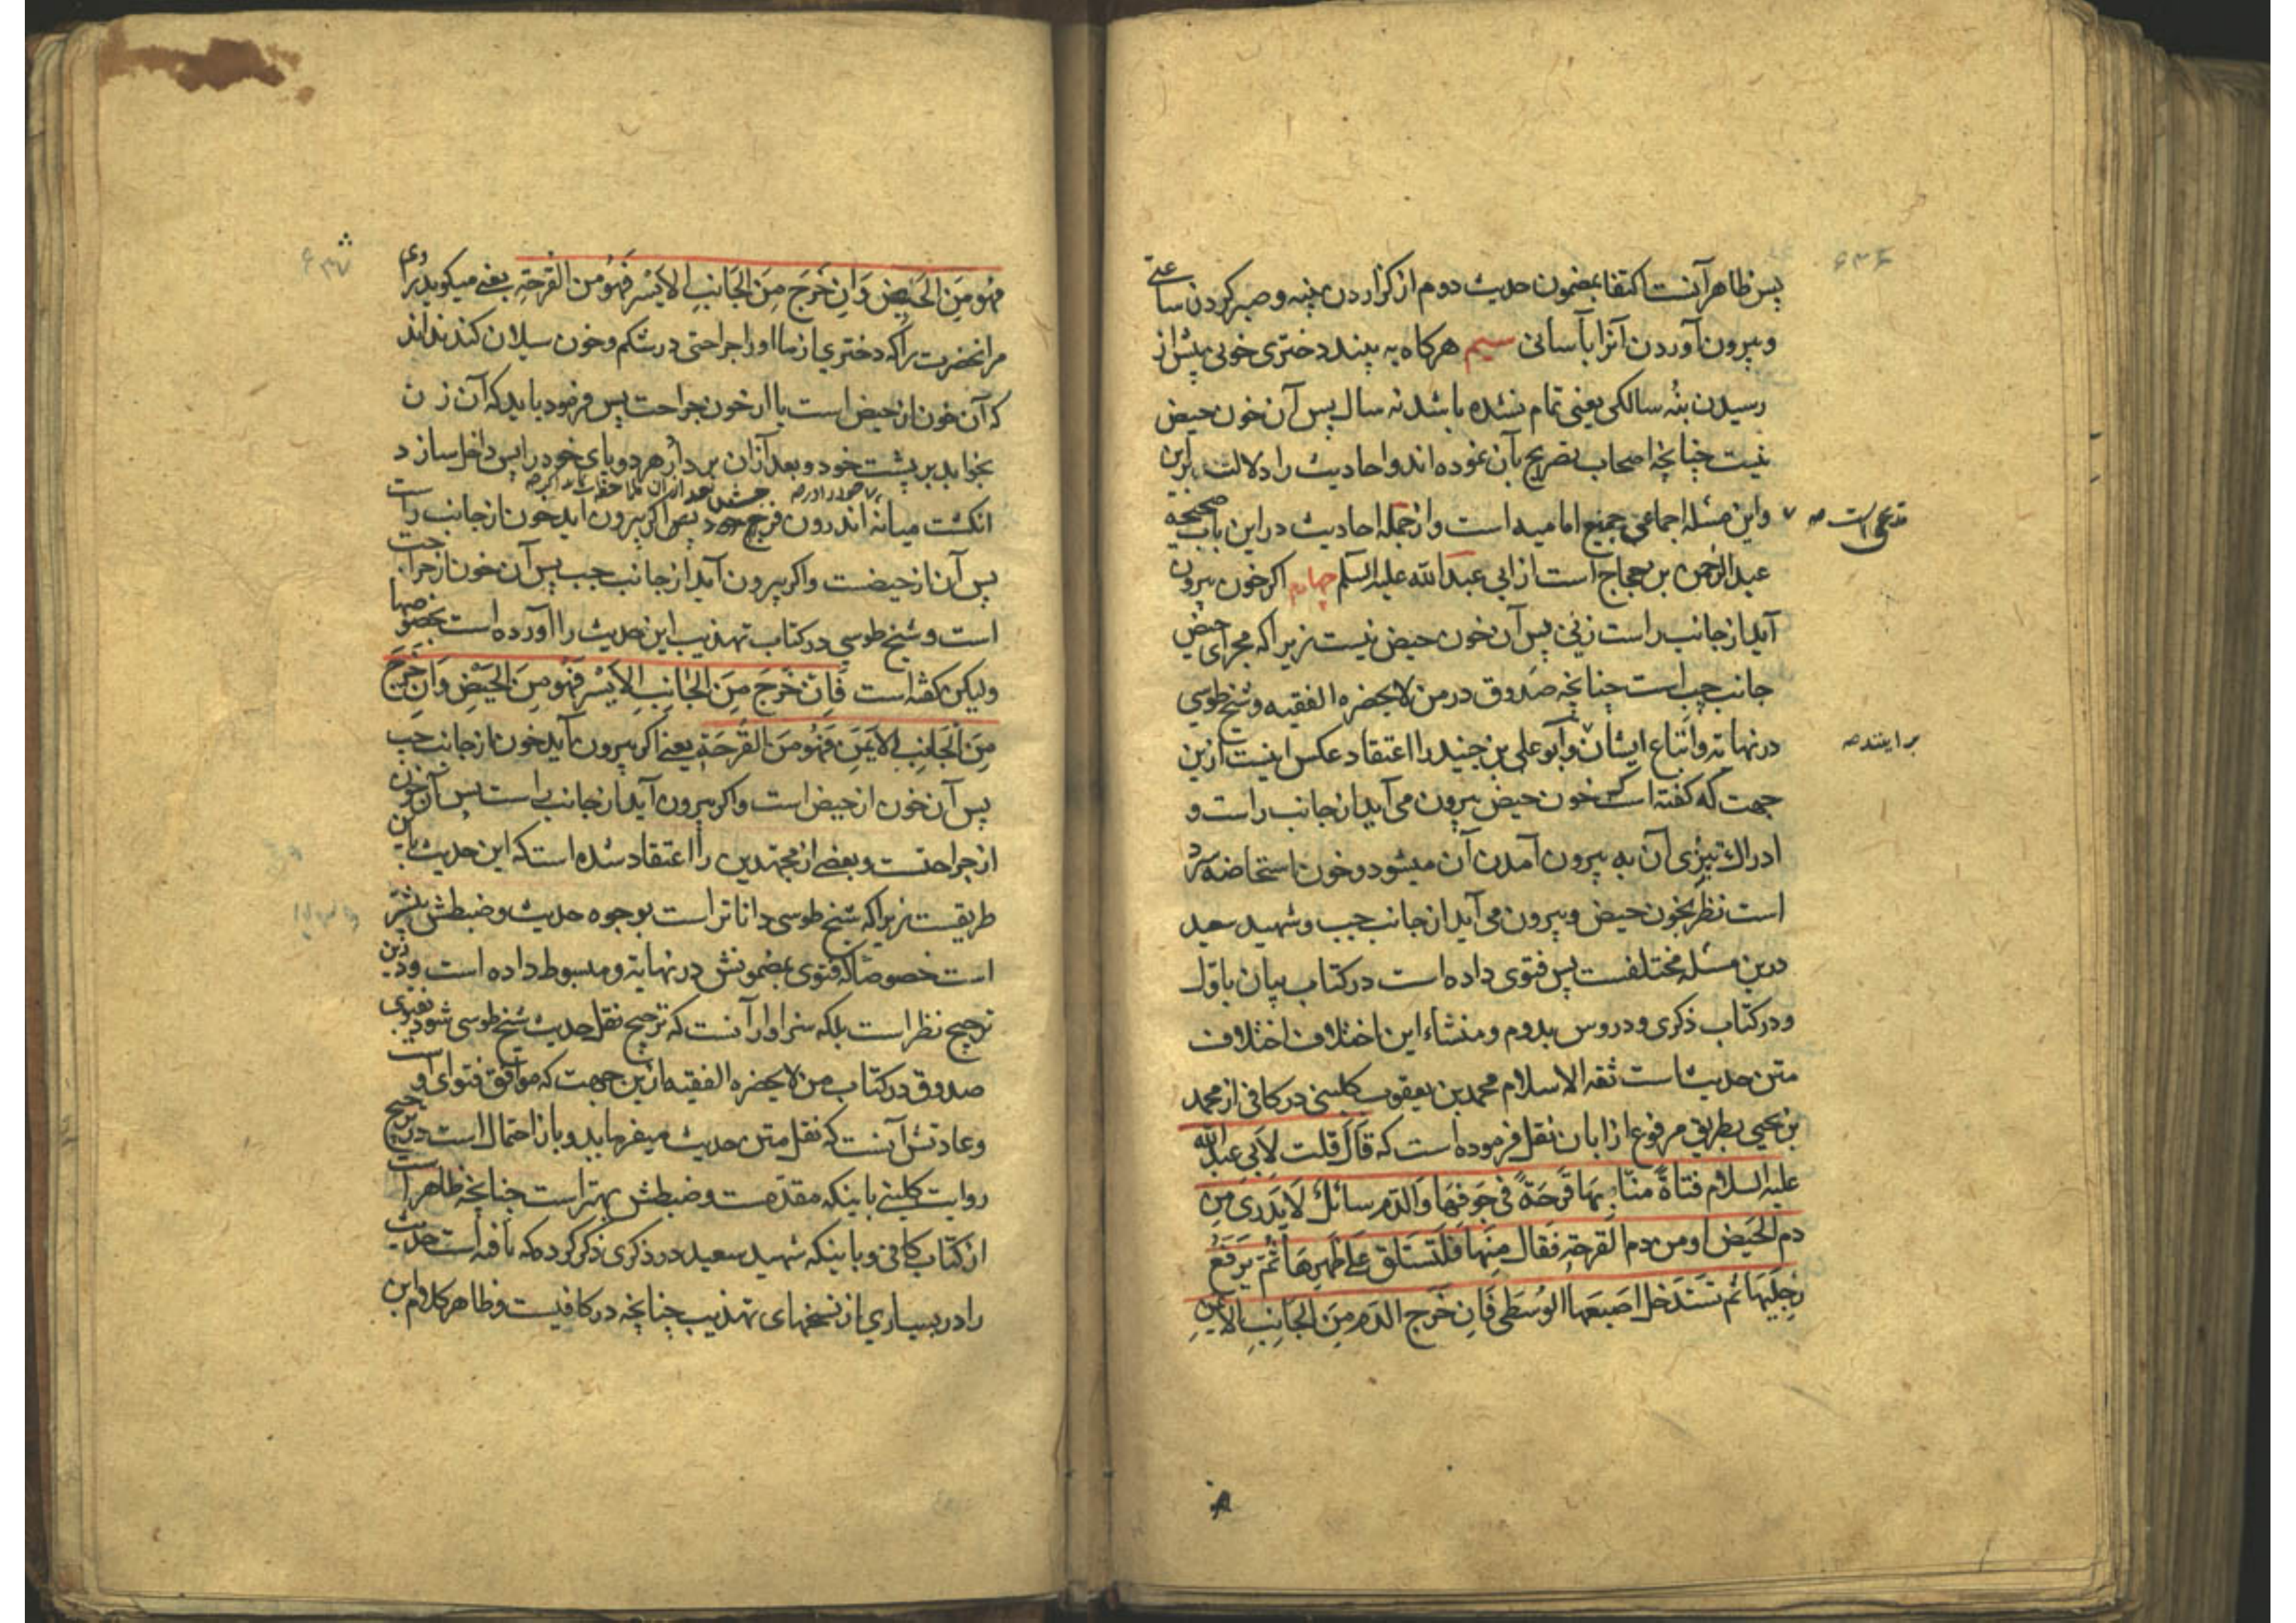 پس ظاهر آنست اکتفا بمضمون حدیث دوم از گذاردن پنبه و صبر کردن ساعتی
و بیرون آوردن آنرا بآسانی سیم هرکاه به بیند دختری خونی پیش از
رسیدن بنه سالکی یعنی تمام نشده باشد نه سال پس آن خون حیض
نیست چنانچه اصحاب تصریح بآن نموده اند و احادیث را دلالت برین
مدعی است صه
و این مسئله اجماعی جمیع امامیه است و از جمله احادیث در این باب صحیحه
عبد الرحمن بن حجاج است از ابی عبد الله علیه السلم چهارم اکر خون بیرون
آید از جانب راست زنی پس آن خون حیض نیست زیرا که مجرای حیض
جانب چپ است چنانچه صدوق در من لایحضره الفقیه و شیخ طوسی
در نهایه و اتباع ایشان و ابو علی بن جنید را اعتقاد عکس اینست ازین
برایند صه
جهت که کفته است که خون حیض بیرون می آید از جانب راست و
ادراک تیزی آن به بیرون آمدن آن میشود و خون استحاضه سرد
است نظر بخون حیض و بیرون می آید از جانب چپ و شهید سعید
درین مسئله مختلفست پس فتوی داده است در کتاب بیان باول
و در کتاب ذکری و دروس بدوم و منشاء این اختلاف اختلاف
متن حدیث است ثقه الاسلام محمد بن یعقوب کلینی در کافی از محمد
بن یحیی بطریق مرفوع از ابان نقل فرموده است که قَالَ قلت لِاَبی عبد الله
علیه السلام فتاةٌ منّا بِهَا قَرحَةٌ فی جَوفِهَا وَالدّم سائلٌ لَایَدری مِن
دم الحَیض او من دم القرحة فقال مِنهَا فَلتَستَلقِ عَلی ظَهرِهَا ثُمّ یَرفَعُ
رِجلَیهَا ثم تَستَدخل اصبَعَها الوُسطَی فَاِن خَرَج الدّم مِنَ الجَانِبِ الایمَنِ
فَهُو مِنَ الحَیضِ وَاِن خَرَجَ مِنَ الجَانِبِ الایسَرِ فَهُوَ مِنَ القَرحَةِ یعنی میکوید راوی
مر انحضرت را که دختری از ما او را جراحتی در شکم و خون سیلان کند نداند
که آن خون از حیض است یا از خون جراحت پس فرمود باید که آن زن
بخوابد بر پشت خود و بعد از آن بر دارد هر دو پای خود را پس داخل سازد
انکشت میانه اندرون فرج خود پس اکر بیرون آید خون از جانب راست
پس آن از حیضست و اکر بیرون آید از جانب چپ پس آن خون از جراحت
است و شیخ طوسی در کتاب تهذیب این حدیث را آورده است بخصوصها
ولیکن کفته است فَاِن خَرَجَ مِنَ الجَانِبِ الاَیسَرِ فَهُوَ مِنَ الحَیضِ وَاِن خَرَجَ
مِنَ الجَانِبِ الاَیمَنِ فَهُوَ مِنَ القَرحَةِ یعنی اکر بیرون آید خون از جانب چپ
پس آن خون از حیض است و اکر بیرون آید از جانب راست پس آن خون
از جراحتست و بعضی از مجتهدین را اعتقاد شده است که این حدیث باین
طریقست زیرا که شیخ طوسی داناتر است بوجوه حدیث و ضبطش بیشتر
است خصوصا که فتوی بمضمونش در نهایه و مبسوط داده است و درین
ترجیح نظر است بلکه سزاوار آنست که ترجیح نقل حدیث شیخ طوسی شود بفتوی
صدوق در کتاب من لایحضره الفقیه ازین جهت که موافق فتوای او است
و عادتش آنست که نقل متن حدیث میفرماید و باز احتمال است در ترجیح
روایت کلینی باینکه مقدمست و ضبطش بهتر است چنانچه ظاهر است
از کتاب کافی و باینکه شهید سعید در ذکری ذکر کرده که یافته است حدیث
را در بسیاری از نسخهای تهذیب چنانچه در کافیست و ظاهر کلام ابن